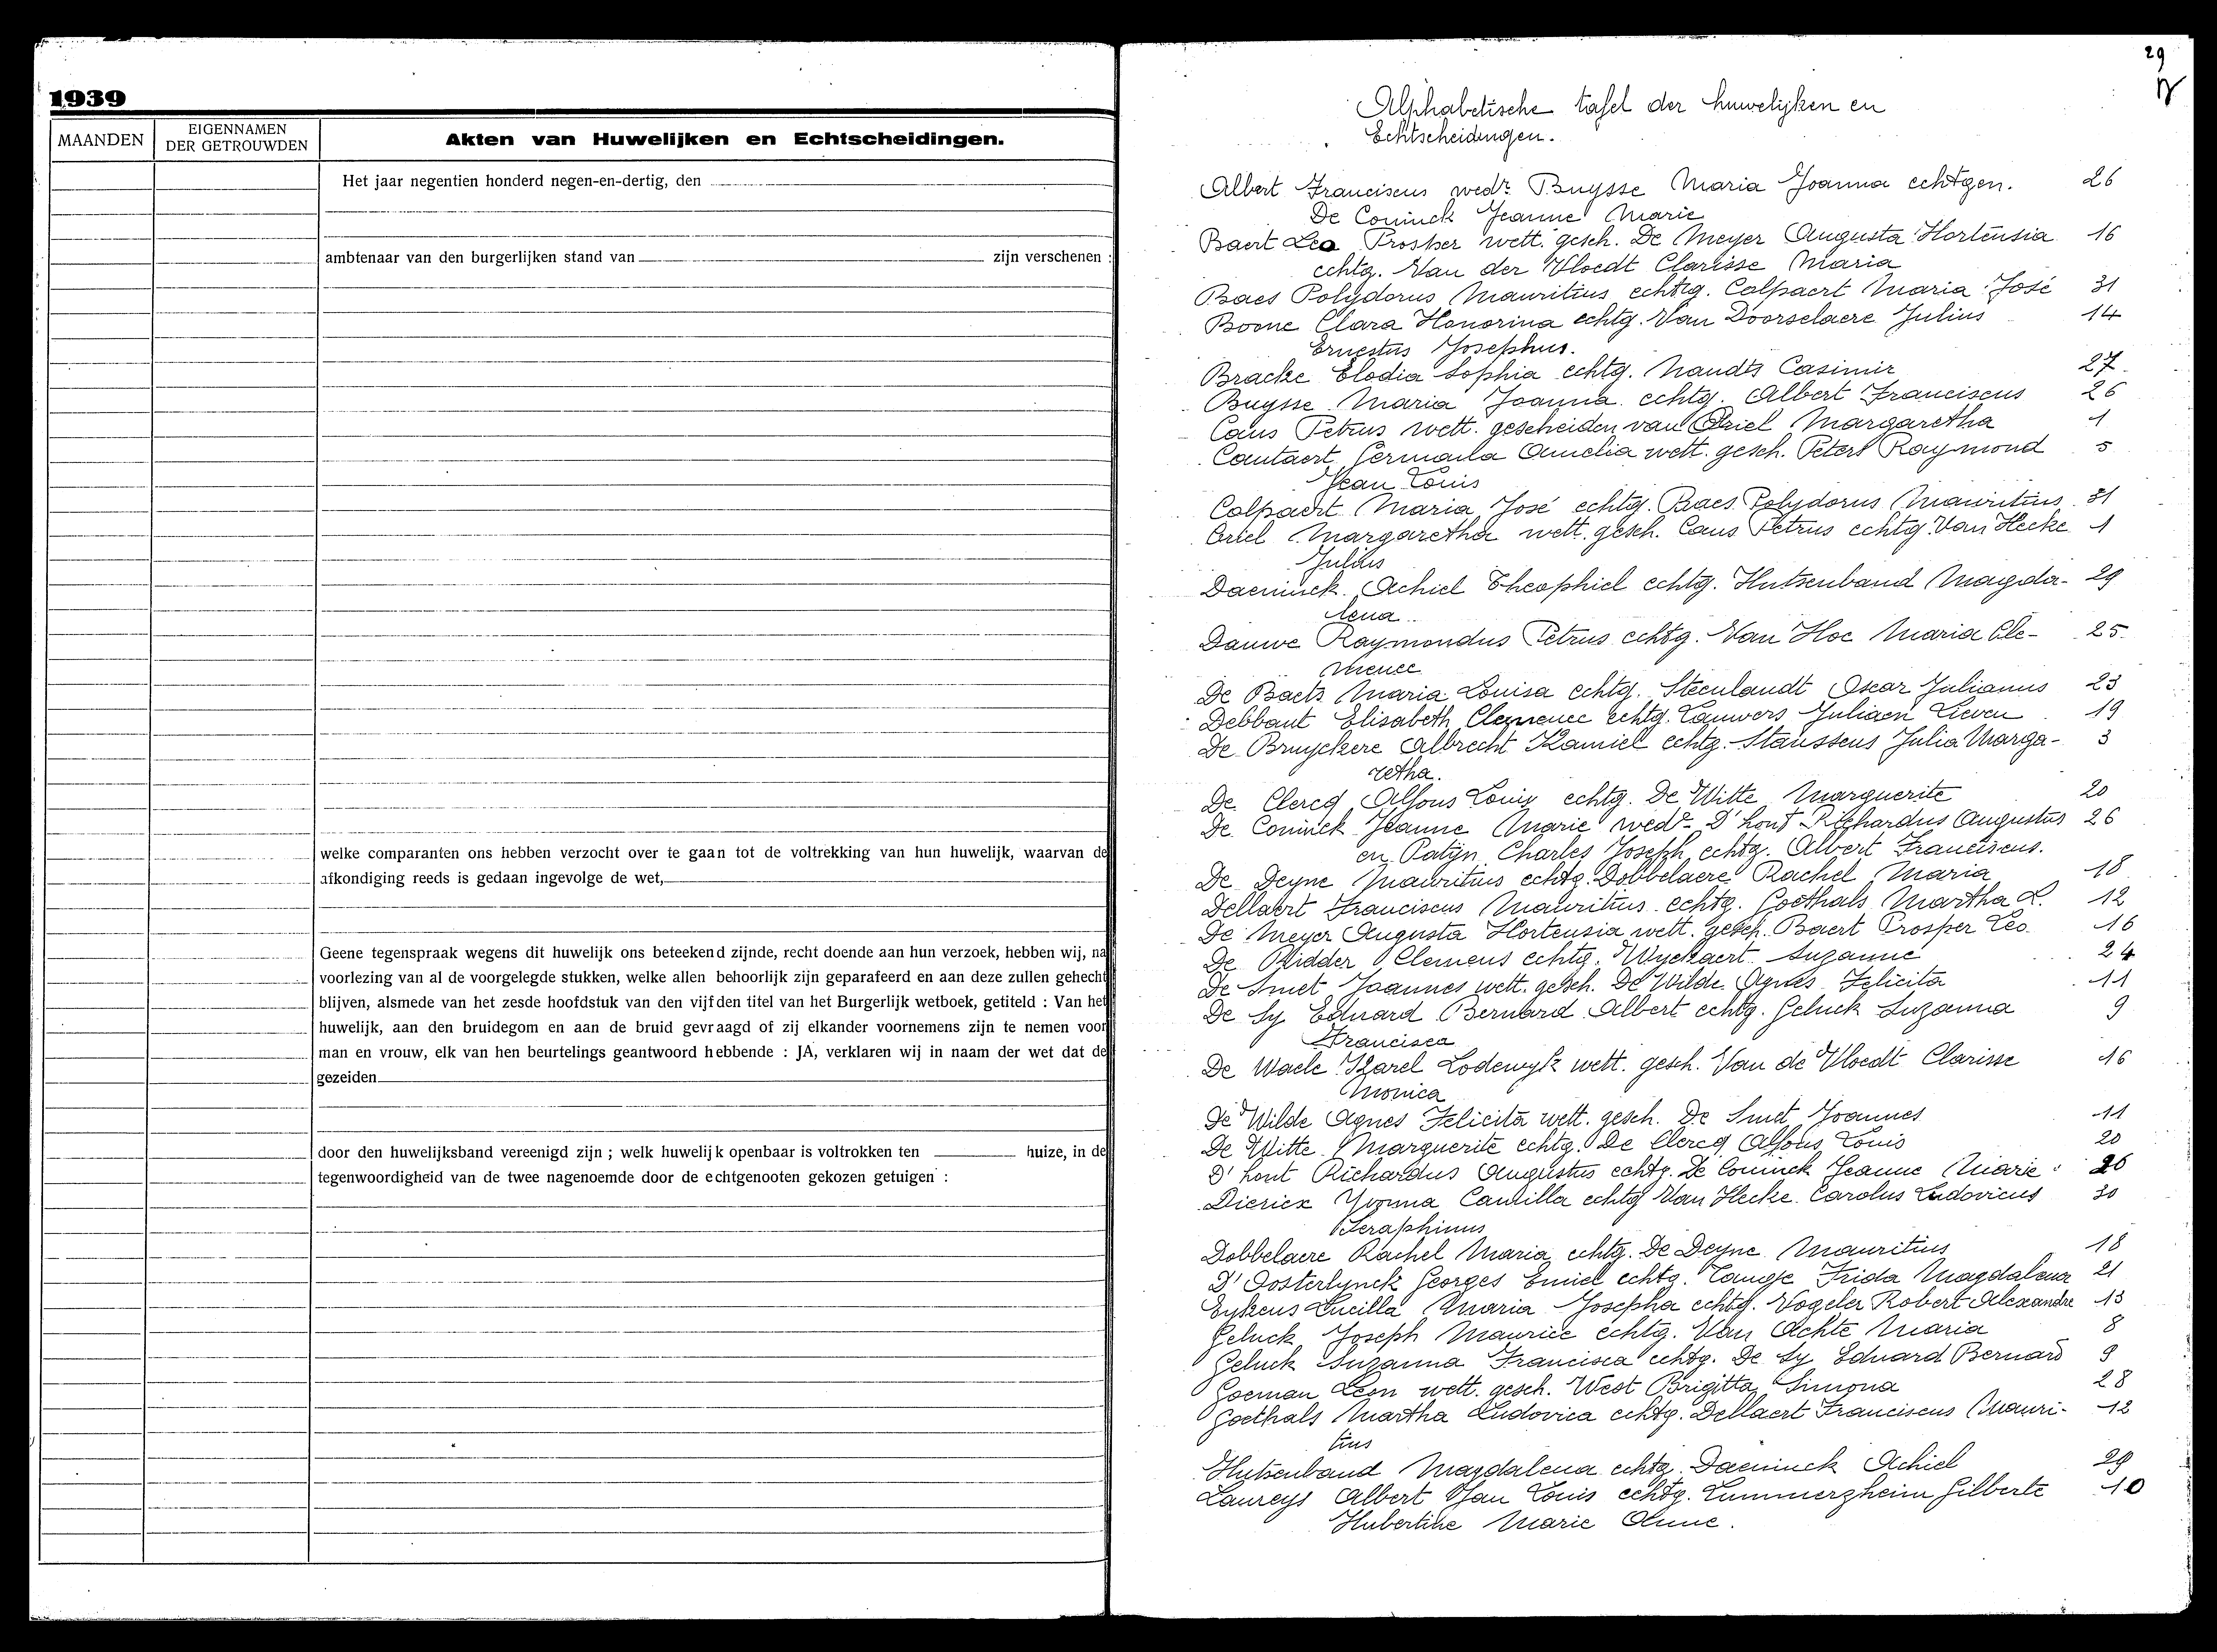 1939
MAANDEN
EIGENNAMEN
DER GETROUWDEN
Akten van Huwelijken en Echtscheidingen.
Het jaar negentien honderd negen-en-dertig, den
ambtenaar van den burgerlijken stand van zijn verschenen :
welke comparanten ons hebben verzocht over te gaan tot de voltrekking van hun huwelijk, waarvan de
afkondiging reeds is gedaan ingevolge de wet,
Geene tegenspraak wegens dit huwelijk ons beteekend zijnde, recht doende aan hun verzoek, hebben wij, na
voorlezing van al de voorgelegde stukken, welke allen behoorlijk zijn geparafeerd en aan deze zullen gehecht
blijven, alsmede van het zesde hoofdstuk van den vijfden titel van het Burgerlijk wetboek, getiteld : Van het
huwelijk, aan den bruidegom en aan de bruid gevraagd of zij elkander voornemens zijn te nemen voor
man en vrouw, elk van hen beurtelings geantwoord hebbende : JA, verklaren wij in naam der wet dat de
gezeiden
door den huwelijksband vereenigd zijn ; welk huwelijk openbaar is voltrokken ten huize, in de
tegenwoordigheid van de twee nagenoemde door de echtgenooten gekozen getuigen :
29
Alphabetische tafel der huwelijken en
Echtscheidingen.
Albert Franciscus wedr. Buysse Maria Joanna echtgen. 26
De Coninck Jeanne Marie
Baert Leo Prosper wett. gesch. De Meyer Augusta Hortensia 16
echtg. Van der Vloedt Clarisse Maria
Baes Polydorus Mauritius echtg. Colpaert Maria José 31
Boone Clara Honorina echtg. Van Doorselaere Julius 14
Ernestus Josephus.
Bracke Elodia Sophia echtg. Naudts Casimir 27
Buysse Maria Joanna echtg. Albert Franciscus 26
Caus Petrus wett. gescheiden van Criel Margaretha 1
Cautaert Germaila Amelia wett. gesch. Peters Raymond 5
Jean Louis
Colpaert Maria José echtg. Baes Polydorus Mauritius 31
Criel Margaretha wett. gesch. Caus Petrus echtg. Van Hecke 1
Julius
Daeninck Achiel Theophiel echtg. Hutsenband Magda- 29
lena
Dauwe Raymondus Petrus echtg. Van Hoe Maria Cle- 25
mence
De Baets Maria Louisa echtg. Steenlandt Oscar Julianus 23
Debbaut Elisabeth Clemence echtg. Lauwers Juliaen Lieven 19
De Bruyckere Albrecht Kamiel echtg. Staussens Julia Marga- 3
retha.
De Clercq Alfons Louis echtg. De Witte Marguerite 20
De Coninck Jeanne Marie wedr D'hont Richardus Augustus 26
en Patijn Charles Joseph echtg. Albert Franciscus.
De Deyne Mauritius echtg. Dobbelaere Rachel Maria 18
Dellaert Franciscus Mauritius echtg. Goethals Martha L. 12
De Meyer Augusta Hortensia wett. gesch. Baert Prosper Leo 16
De Ridder Clemens echtg. Wyckaert Suzanne 24
De Smet Joannes wett. gesch. De Wilde Agnes Felicita 11
De Sy Eduard Bernard Albert echtg. Geluck Suzanna 9
Francisca
De Waele Karel Lodewyk wett. gesch. Van de Vloedt Clarisse 16
Monica
De Wilde Agnes Felicita wett. gesch. De Smet Joannes 11
De Witte Marguerite echtg. De Clercq Alfons Louis 20
D'hont Richardus Augustus echtg. De Coninck Jeanne Marie 26
Diericx Yvonna Camilla echtg Van Hecke Carolus Ludovicus 30
Seraphinus
Dobbelaere Rachel Maria echtg. De Deyne Mauritius 18
D'Oosterlynck Georges Emiel echtg. Tanghe Frida Magdalena 21
Eykens Lucilla Maria Josepha echtg. Vogeler Robert Alexandre 13
Geluck Joseph Maurice echtg. Van Achte Maria 8
Geluck Suzanna Francisca echtg. De Sy Eduard Bernard 9
Goeman Leon wett. gesch. West Brigitta Simona 28
Goethals Martha Ludovica echtg. Dellaert Franciscus Mauri- 12
tius
Hutsenband Magdalena echtg. Daeninck Achiel 29
Laureys Albert Jan Louis echtg. Lummerzheim Gilberte 10
Hubertine Marie Anne.